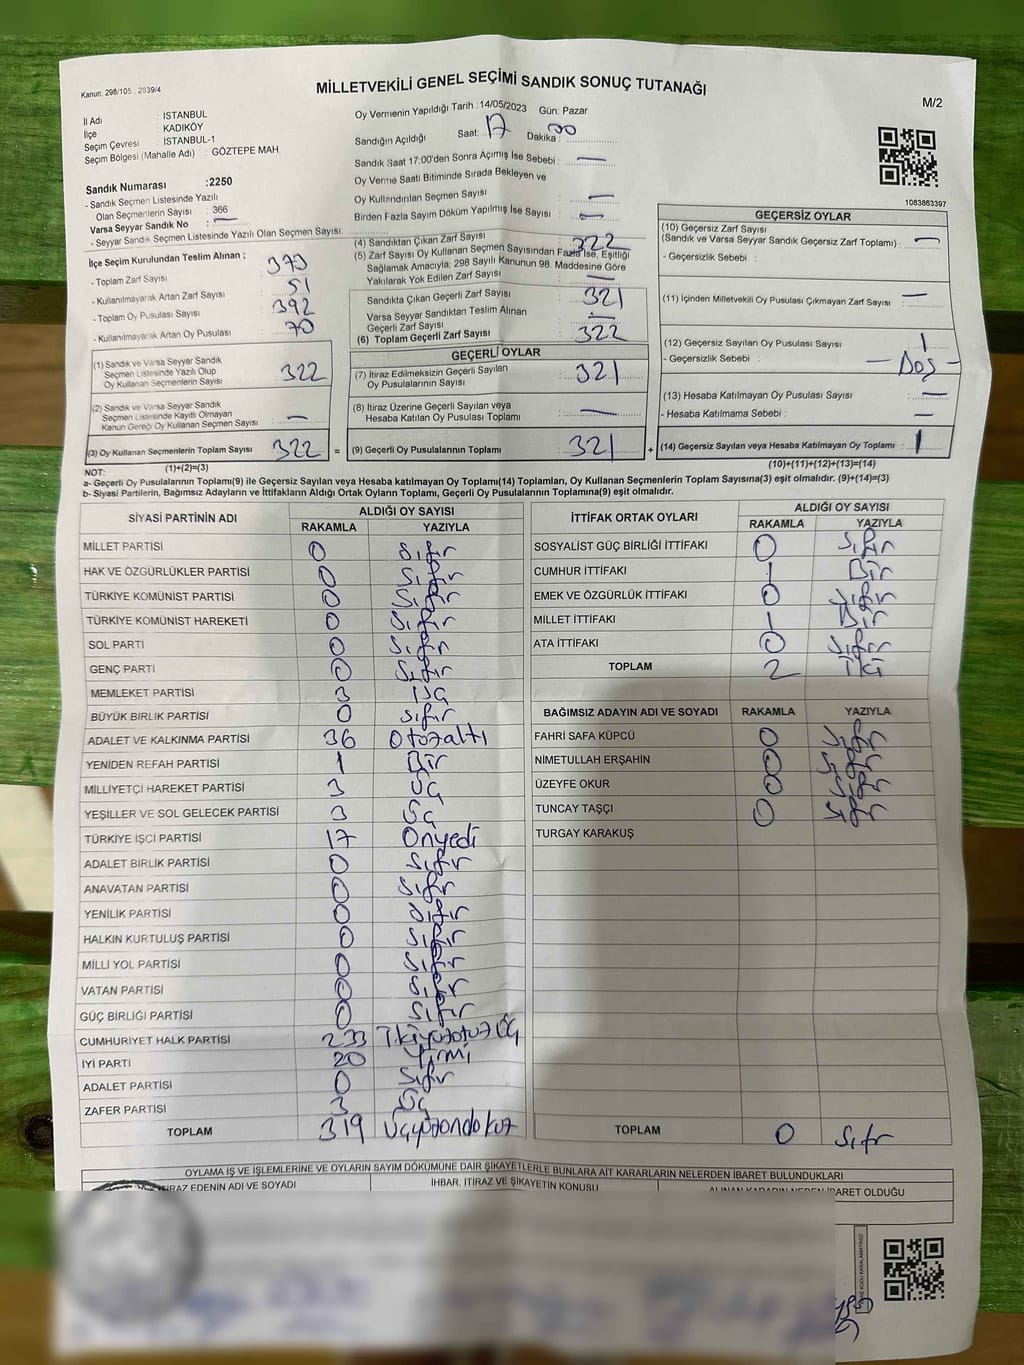 Kanun: 298/105 . 2839/4
MİLLETVEKİLİ GENEL SEÇİMİ SANDIK SONUÇ TUTANAĞI
M/2
İl Adı : İSTANBUL
İlçe : KADIKÖY
Seçim Çevresi : İSTANBUL-1
Seçim Bölgesi (Mahalle Adı) : GÖZTEPE MAH.
Sandık Numarası :2250
- Sandık Seçmen Listesinde Yazılı
Olan Seçmenlerin Sayısı : 366
Varsa Seyyar Sandık No : —
- Seyyar Sandık Seçmen Listesinde Yazılı Olan Seçmen Sayısı:
Oy Vermenin Yapıldığı Tarih : 14/05/2023 Gün: Pazar
Sandığın Açıldığı Saat: 17 Dakika: 00
Sandık Saat 17:00'den Sonra Açımış İse Sebebi : —
Oy Verme Saati Bitiminde Sırada Bekleyen ve
Oy Kullandırılan Seçmen Sayısı : —
Birden Fazla Sayım Döküm Yapılmış İse Sayısı : —
1083863397
İlçe Seçim Kurulundan Teslim Alınan ;
- Toplam Zarf Sayısı : 373
- Kullanılmayarak Artan Zarf Sayısı : 51
- Toplam Oy Pusulası Sayısı : 392
- Kullanılmayarak Artan Oy Pusulası : 70
(1) Sandık ve Varsa Seyyar Sandık
Seçmen Listesinde Yazılı Olup
Oy Kullanan Seçmenlerin Sayısı : 322
(2) Sandık ve Varsa Seyyar Sandık
Seçmen Listesinde Kayıtlı Olmayan
Kanun Gereği Oy Kullanan Seçmen Sayısı : —
(3) Oy Kullanan Seçmenlerin Toplam Sayısı 322 =
(1)+(2)=(3)
(4) Sandıktan Çıkan Zarf Sayısı : 322
(5) Zarf Sayısı Oy Kullanan Seçmen Sayısından Fazla İse, Eşitliği
Sağlamak Amacıyla, 298 Sayılı Kanunun 98. Maddesine Göre
Yakılarak Yok Edilen Zarf Sayısı : —
Sandıkta Çıkan Geçerli Zarf Sayısı : 321
Varsa Seyyar Sandıktan Teslim Alınan
Geçerli Zarf Sayısı : —
(6) Toplam Geçerli Zarf Sayısı : 322
GEÇERLİ OYLAR
(7) İtiraz Edilmeksizin Geçerli Sayılan
Oy Pusulalarının Sayısı : 321
(8) İtiraz Üzerine Geçerli Sayılan veya
Hesaba Katılan Oy Pusulası Toplamı : —
(9) Geçerli Oy Pusulalarının Toplamı : 321 +
GEÇERSİZ OYLAR
(10) Geçersiz Zarf Sayısı
(Sandık ve Varsa Seyyar Sandık Geçersiz Zarf Toplamı) : —
- Geçersizlik Sebebi :
(11) İçinden Milletvekili Oy Pusulası Çıkmayan Zarf Sayısı : —
(12) Geçersiz Sayılan Oy Pusulası Sayısı : 1
- Geçersizlik Sebebi : — Boş —
(13) Hesaba Katılmayan Oy Pusulası Sayısı : —
- Hesaba Katılmama Sebebi : —
(14) Geçersiz Sayılan veya Hesaba Katılmayan Oy Toplamı : 1
(10)+(11)+(12)+(13)=(14)
NOT:
a- Geçerli Oy Pusulalarının Toplamı(9) ile Geçersiz Sayılan veya Hesaba katılmayan Oy Toplamı(14) Toplamları, Oy Kullanan Seçmenlerin Toplam Sayısına(3) eşit olmalıdır. (9)+(14)=(3)
b- Siyasi Partilerin, Bağımsız Adayların ve İttifakların Aldığı Ortak Oyların Toplamı, Geçerli Oy Pusulalarının Toplamına(9) eşit olmalıdır.
SİYASİ PARTİNİN ADI ALDIĞI OY SAYISI
RAKAMLA YAZIYLA
MİLLET PARTİSİ 0 Sıfır
HAK VE ÖZGÜRLÜKLER PARTİSİ 0 Sıfır
TÜRKİYE KOMÜNİST PARTİSİ 0 Sıfır
TÜRKİYE KOMÜNİST HAREKETİ 0 Sıfır
SOL PARTİ 0 Sıfır
GENÇ PARTİ 0 Sıfır
MEMLEKET PARTİSİ 3 Üç
BÜYÜK BİRLİK PARTİSİ 0 Sıfır
ADALET VE KALKINMA PARTİSİ 36 Otuzaltı
YENİDEN REFAH PARTİSİ 1 Bir
MİLLİYETÇİ HAREKET PARTİSİ 3 Üç
YEŞİLLER VE SOL GELECEK PARTİSİ 3 Üç
TÜRKİYE İŞÇİ PARTİSİ 17 Onyedi
ADALET BİRLİK PARTİSİ 0 Sıfır
ANAVATAN PARTİSİ 0 Sıfır
YENİLİK PARTİSİ 0 Sıfır
HALKIN KURTULUŞ PARTİSİ 0 Sıfır
MİLLİ YOL PARTİSİ 0 Sıfır
VATAN PARTİSİ 0 Sıfır
GÜÇ BİRLİĞİ PARTİSİ 0 Sıfır
CUMHURİYET HALK PARTİSİ 233 İkiyüzotuzüç
İYİ PARTİ 20 Yirmi
ADALET PARTİSİ 0 Sıfır
ZAFER PARTİSİ 3 Üç
TOPLAM 319 Üçyüzondokuz
İTTİFAK ORTAK OYLARI ALDIĞI OY SAYISI
RAKAMLA YAZIYLA
SOSYALİST GÜÇ BİRLİĞİ İTTİFAKI 0 Sıfır
CUMHUR İTTİFAKI 1 Bir
EMEK VE ÖZGÜRLÜK İTTİFAKI 0 Sıfır
MİLLET İTTİFAKI 1 Bir
ATA İTTİFAKI 0 Sıfır
TOPLAM 2 İki
BAĞIMSIZ ADAYIN ADI VE SOYADI RAKAMLA YAZIYLA
FAHRİ SAFA KÜPCÜ 0 Sıfır
NİMETULLAH ERŞAHİN 0 Sıfır
ÜZEYFE OKUR 0 Sıfır
TUNCAY TAŞÇI 0 Sıfır
TURGAY KARAKUŞ
TOPLAM 0 Sıfır
OYLAMA İŞ VE İŞLEMLERİNE VE OYLARIN SAYIM DÖKÜMÜNE DAİR ŞİKAYETLERLE BUNLARA AİT KARARLARIN NELERDEN İBARET BULUNDUKLARI
İTİRAZ EDENİN ADI VE SOYADI İHBAR, İTİRAZ VE ŞİKAYETİN KONUSU ALINAN KARARIN NEDEN İBARET OLDUĞU